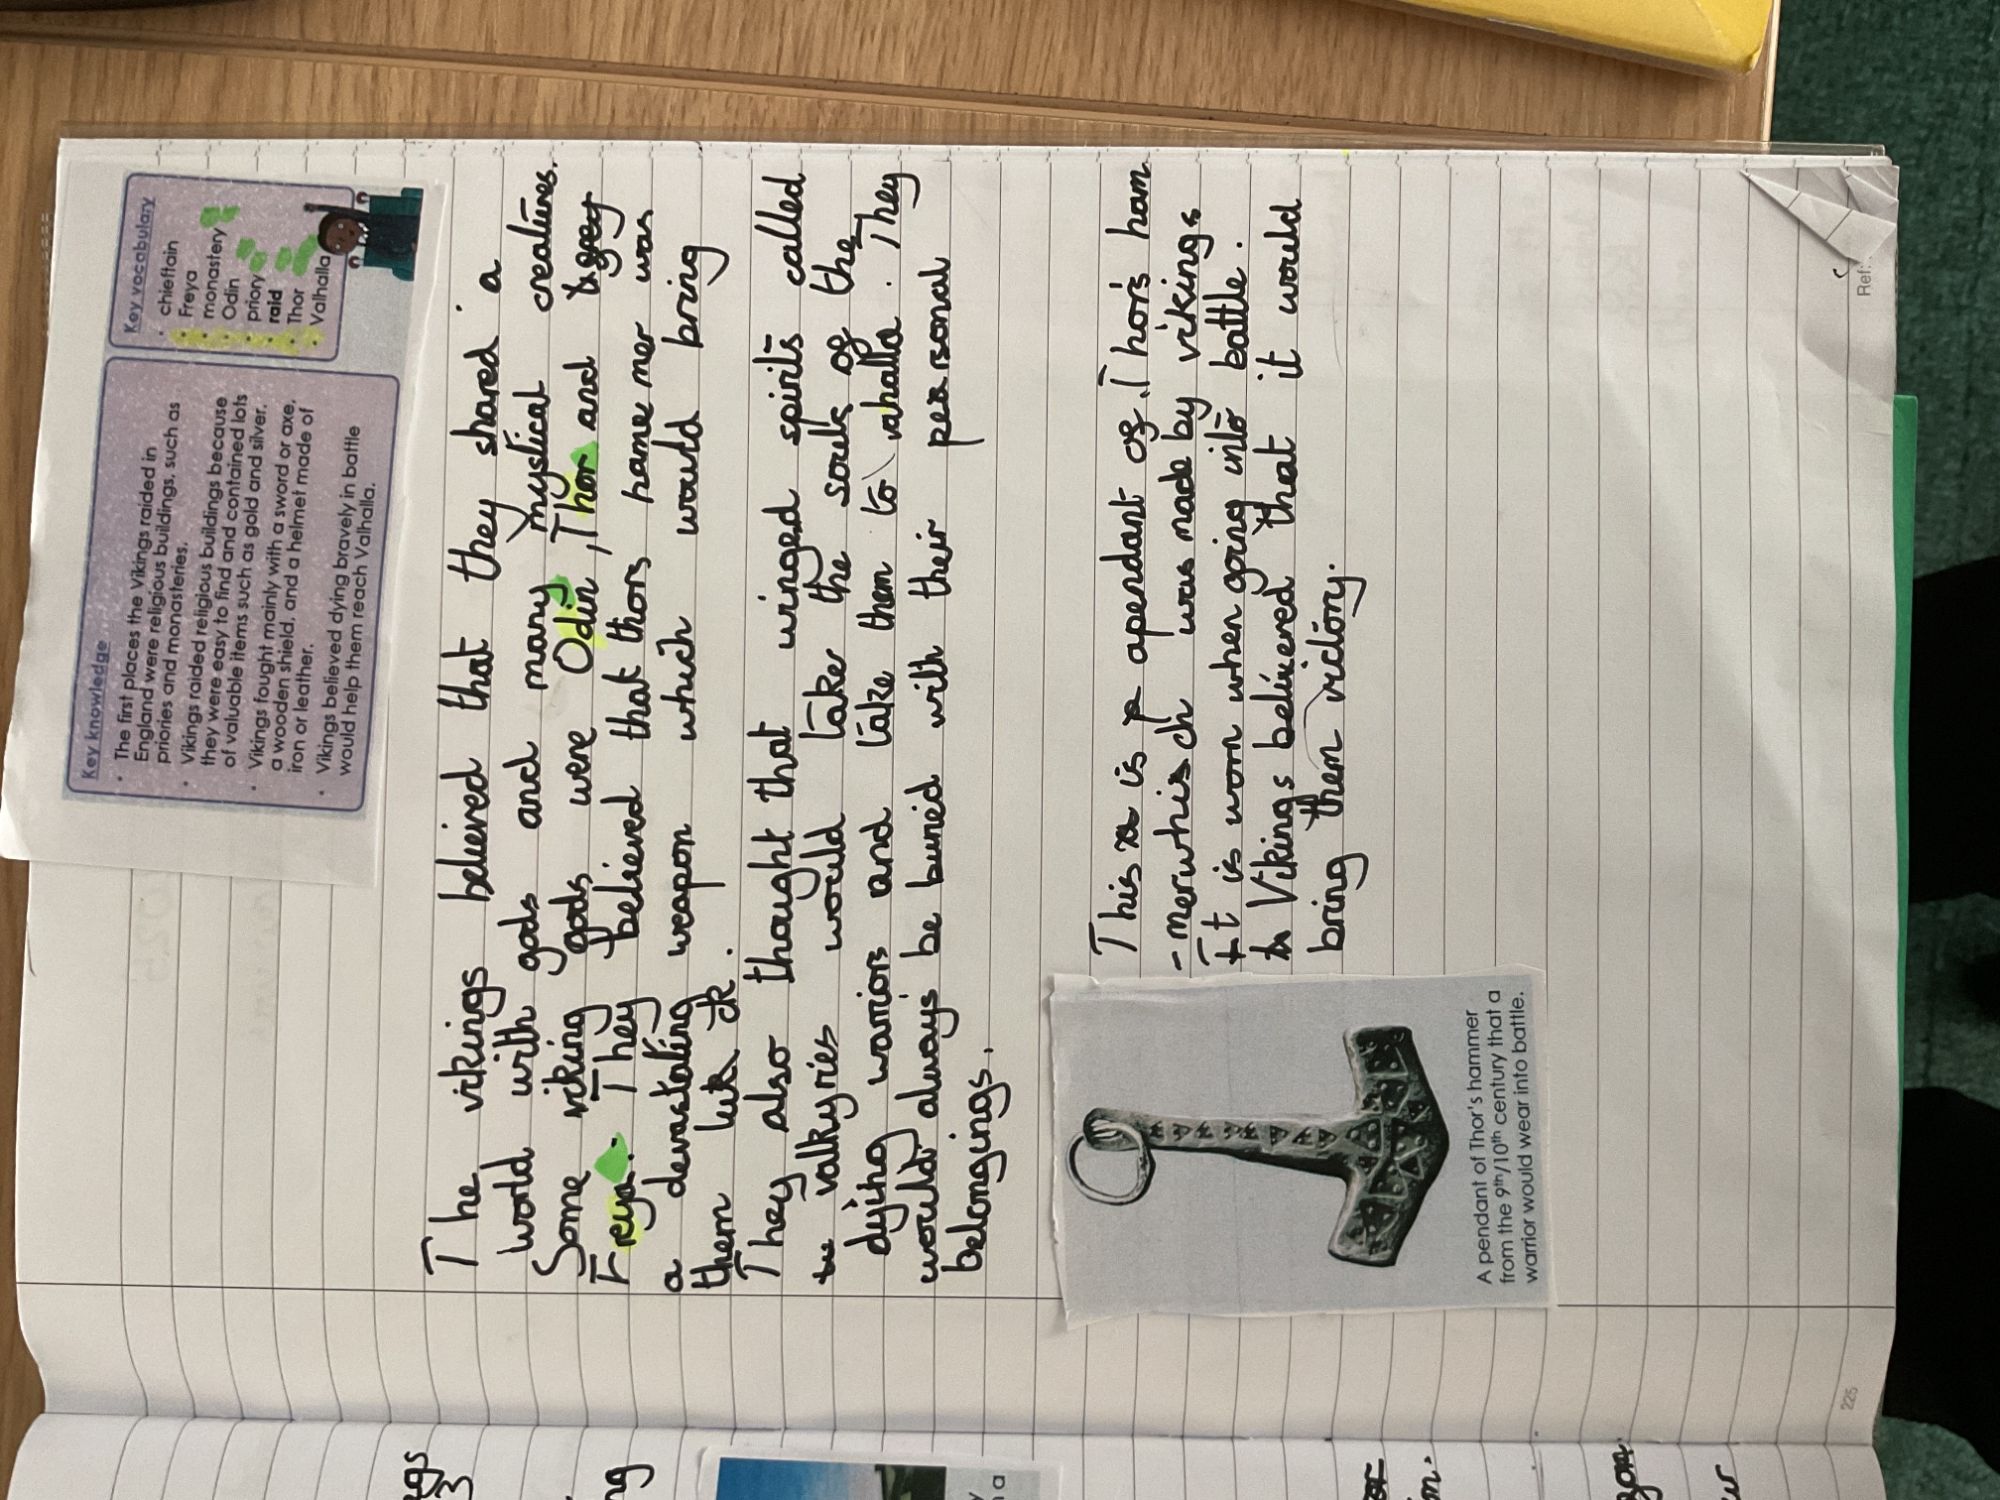 Key knowledge
• The first places the Vikings raided in
England were religious buildings, such as
priories and monasteries.
• Vikings raided religious buildings because
they were easy to find and contained lots
of valuable items such as gold and silver.
• Vikings fought mainly with a sword or axe,
a wooden shield, and a helmet made of
iron or leather.
• Vikings believed dying bravely in battle
would help them reach Valhalla.
Key vocabulary
• chieftain
• Freya
• monastery
• Odin
• priory
• raid
• Thor
• Valhalla
The vikings believed that they shared a
world with gods and many mystical creatures.
Some viking gods were Odin, Thor and
Freya. They believed that thors hame mer was
a devastating weapon which would bring
them luck.
They also thought that winged spirits called
valkyries would take the souls of the
dying warriors and take them to valhalla. They
would always be buried with their personal
belongings.
A pendant of Thor's hammer
from the 9th/10th century that a
warrior would wear into battle.
This is a pendant of Thor's ham
-merwhisch was made by vikings
It is worn when going into battle.
Vikings believed that it would
bring them victory.
225
Ref: